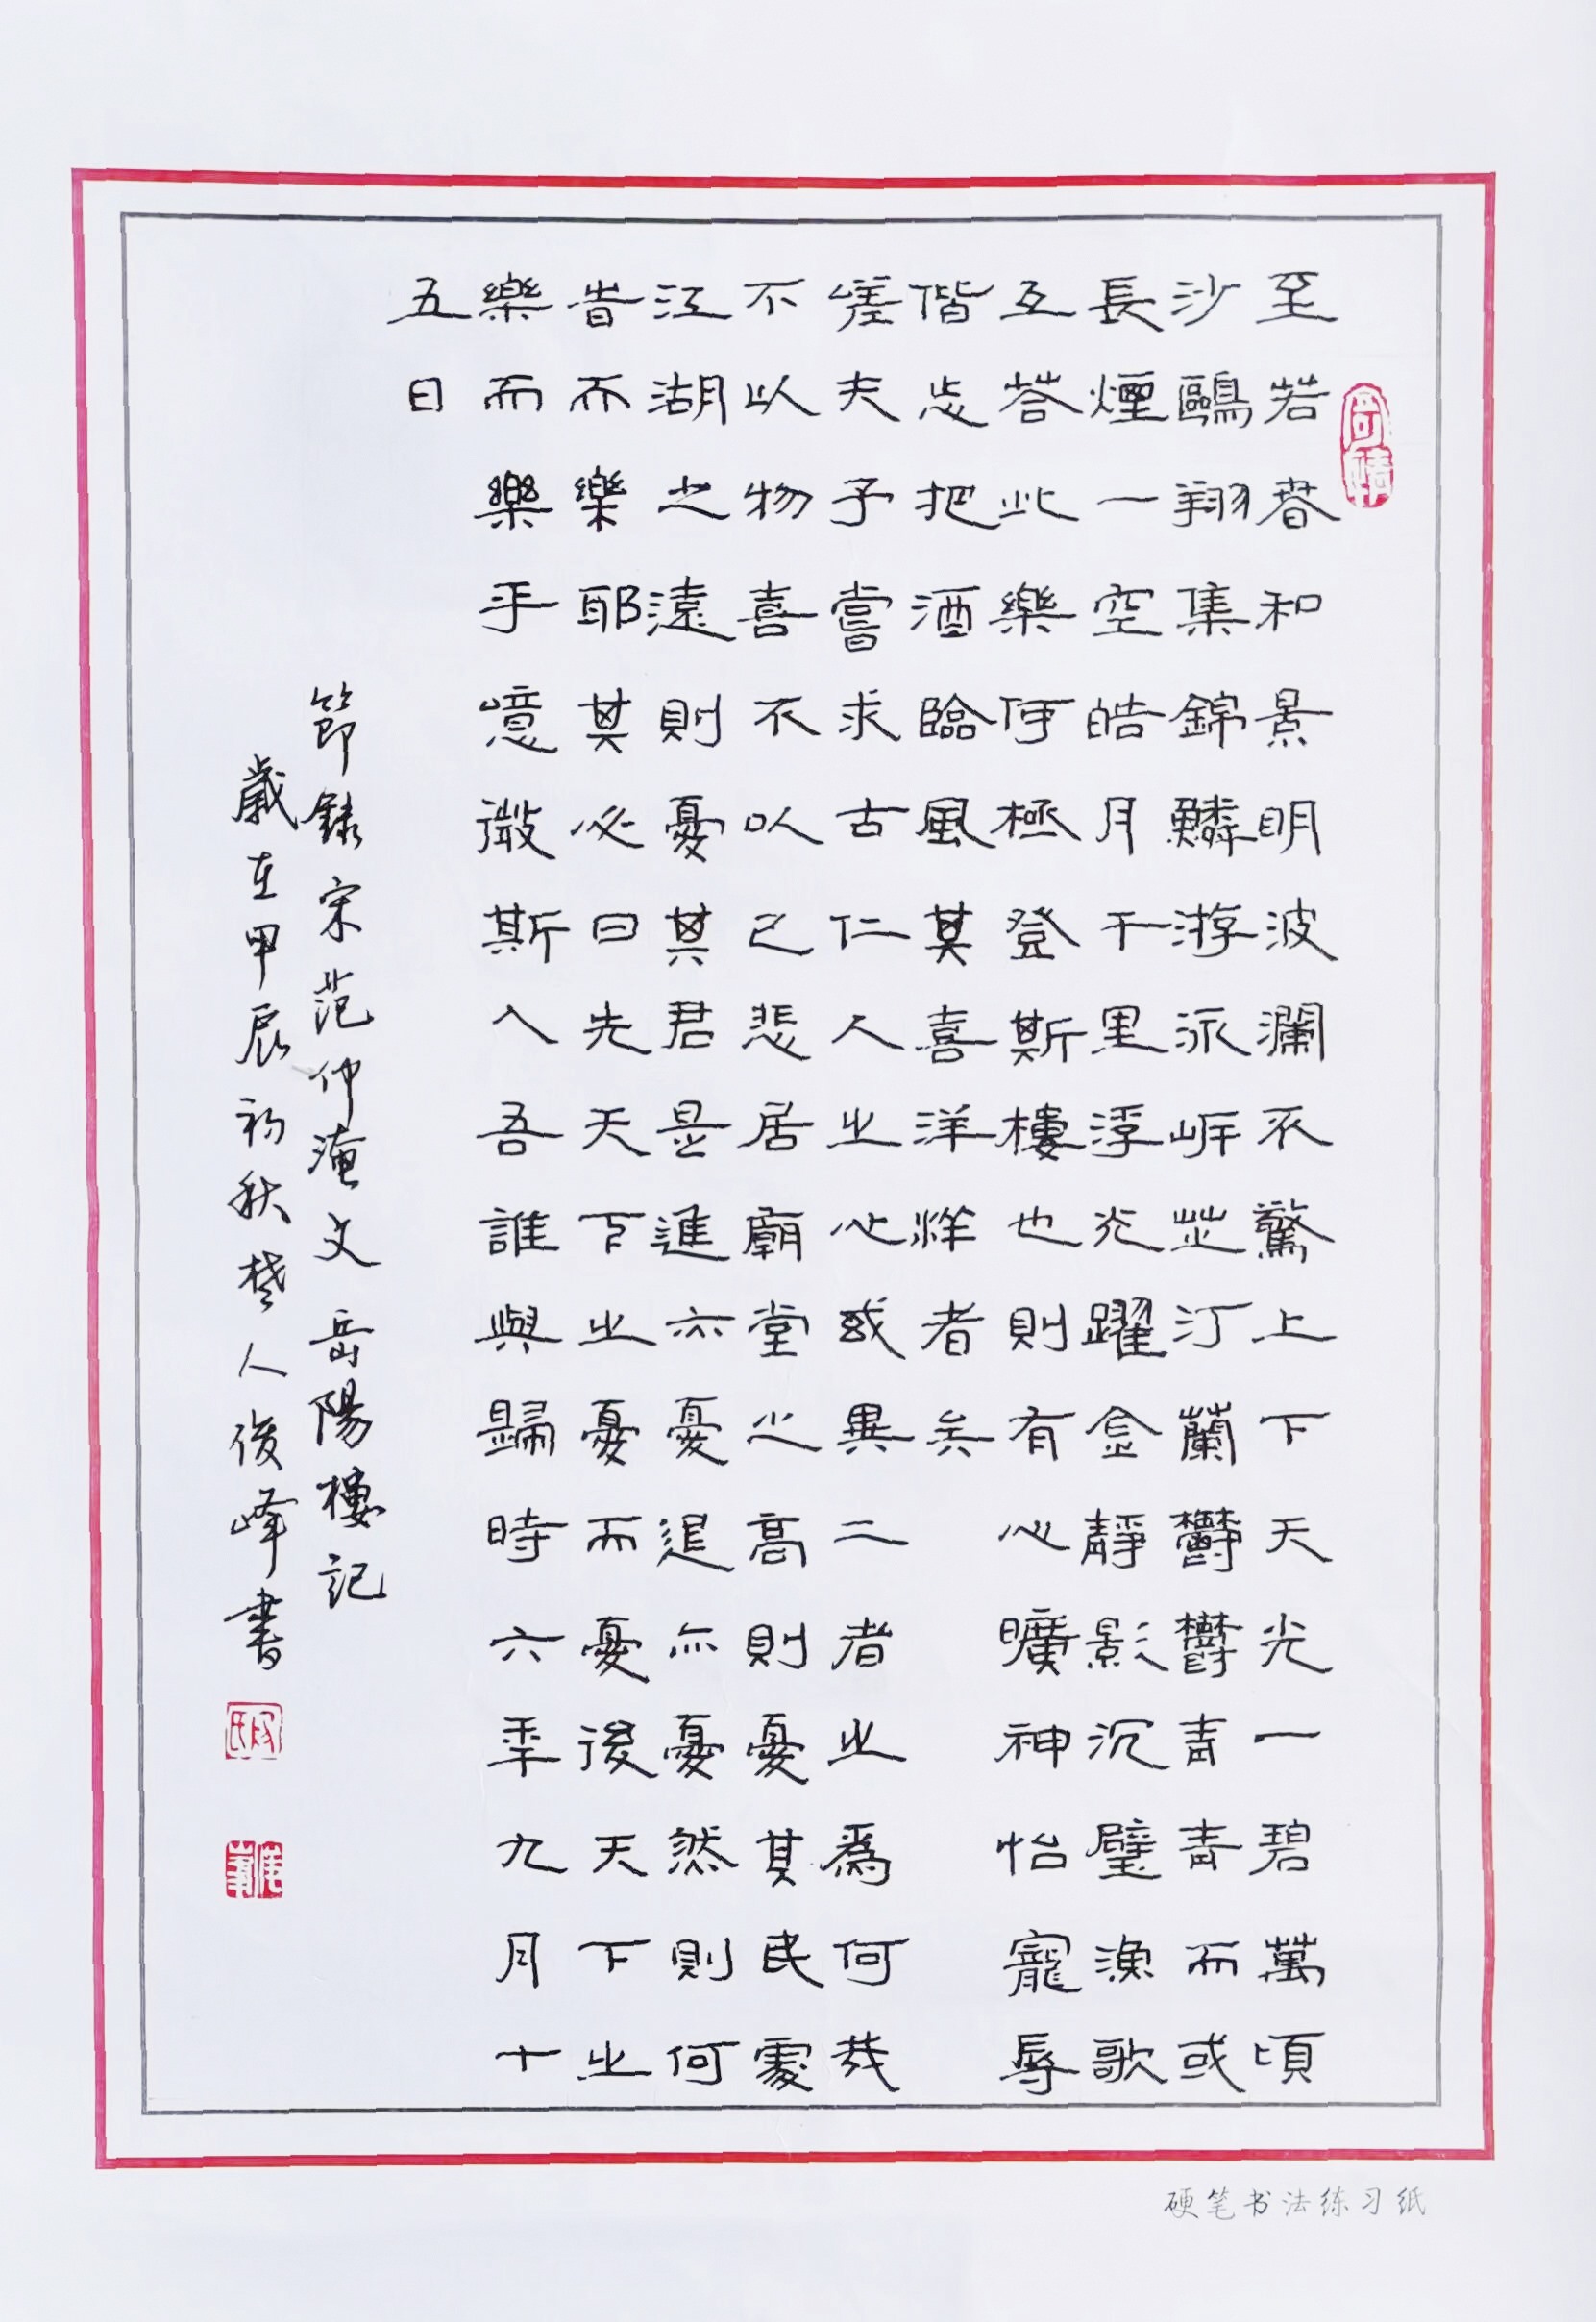 至若春和景明波瀾不驚上下天光一碧萬頃
沙鷗翔集錦鱗游泳岸芷汀蘭鬱鬱青青而或
長煙一空皓月千里浮光躍金靜影沉璧漁歌
互荅此樂何極登斯樓也則有心曠神怡寵辱
偕忘把酒臨風其喜洋洋者矣
嗟夫予嘗求古仁人之心或異二者之爲何哉
不以物喜不以己悲居廟堂之高則憂其民處
江湖之遠則憂其君是進亦憂退亦憂然則何
旹而樂耶其必曰先天下之憂而憂後天下之
樂而樂乎噫微斯人吾誰與歸時六年九月十
五日
節錄宋范仲淹文岳陽樓記
歲在甲辰初秋楚人俊峰書
硬笔书法练习纸